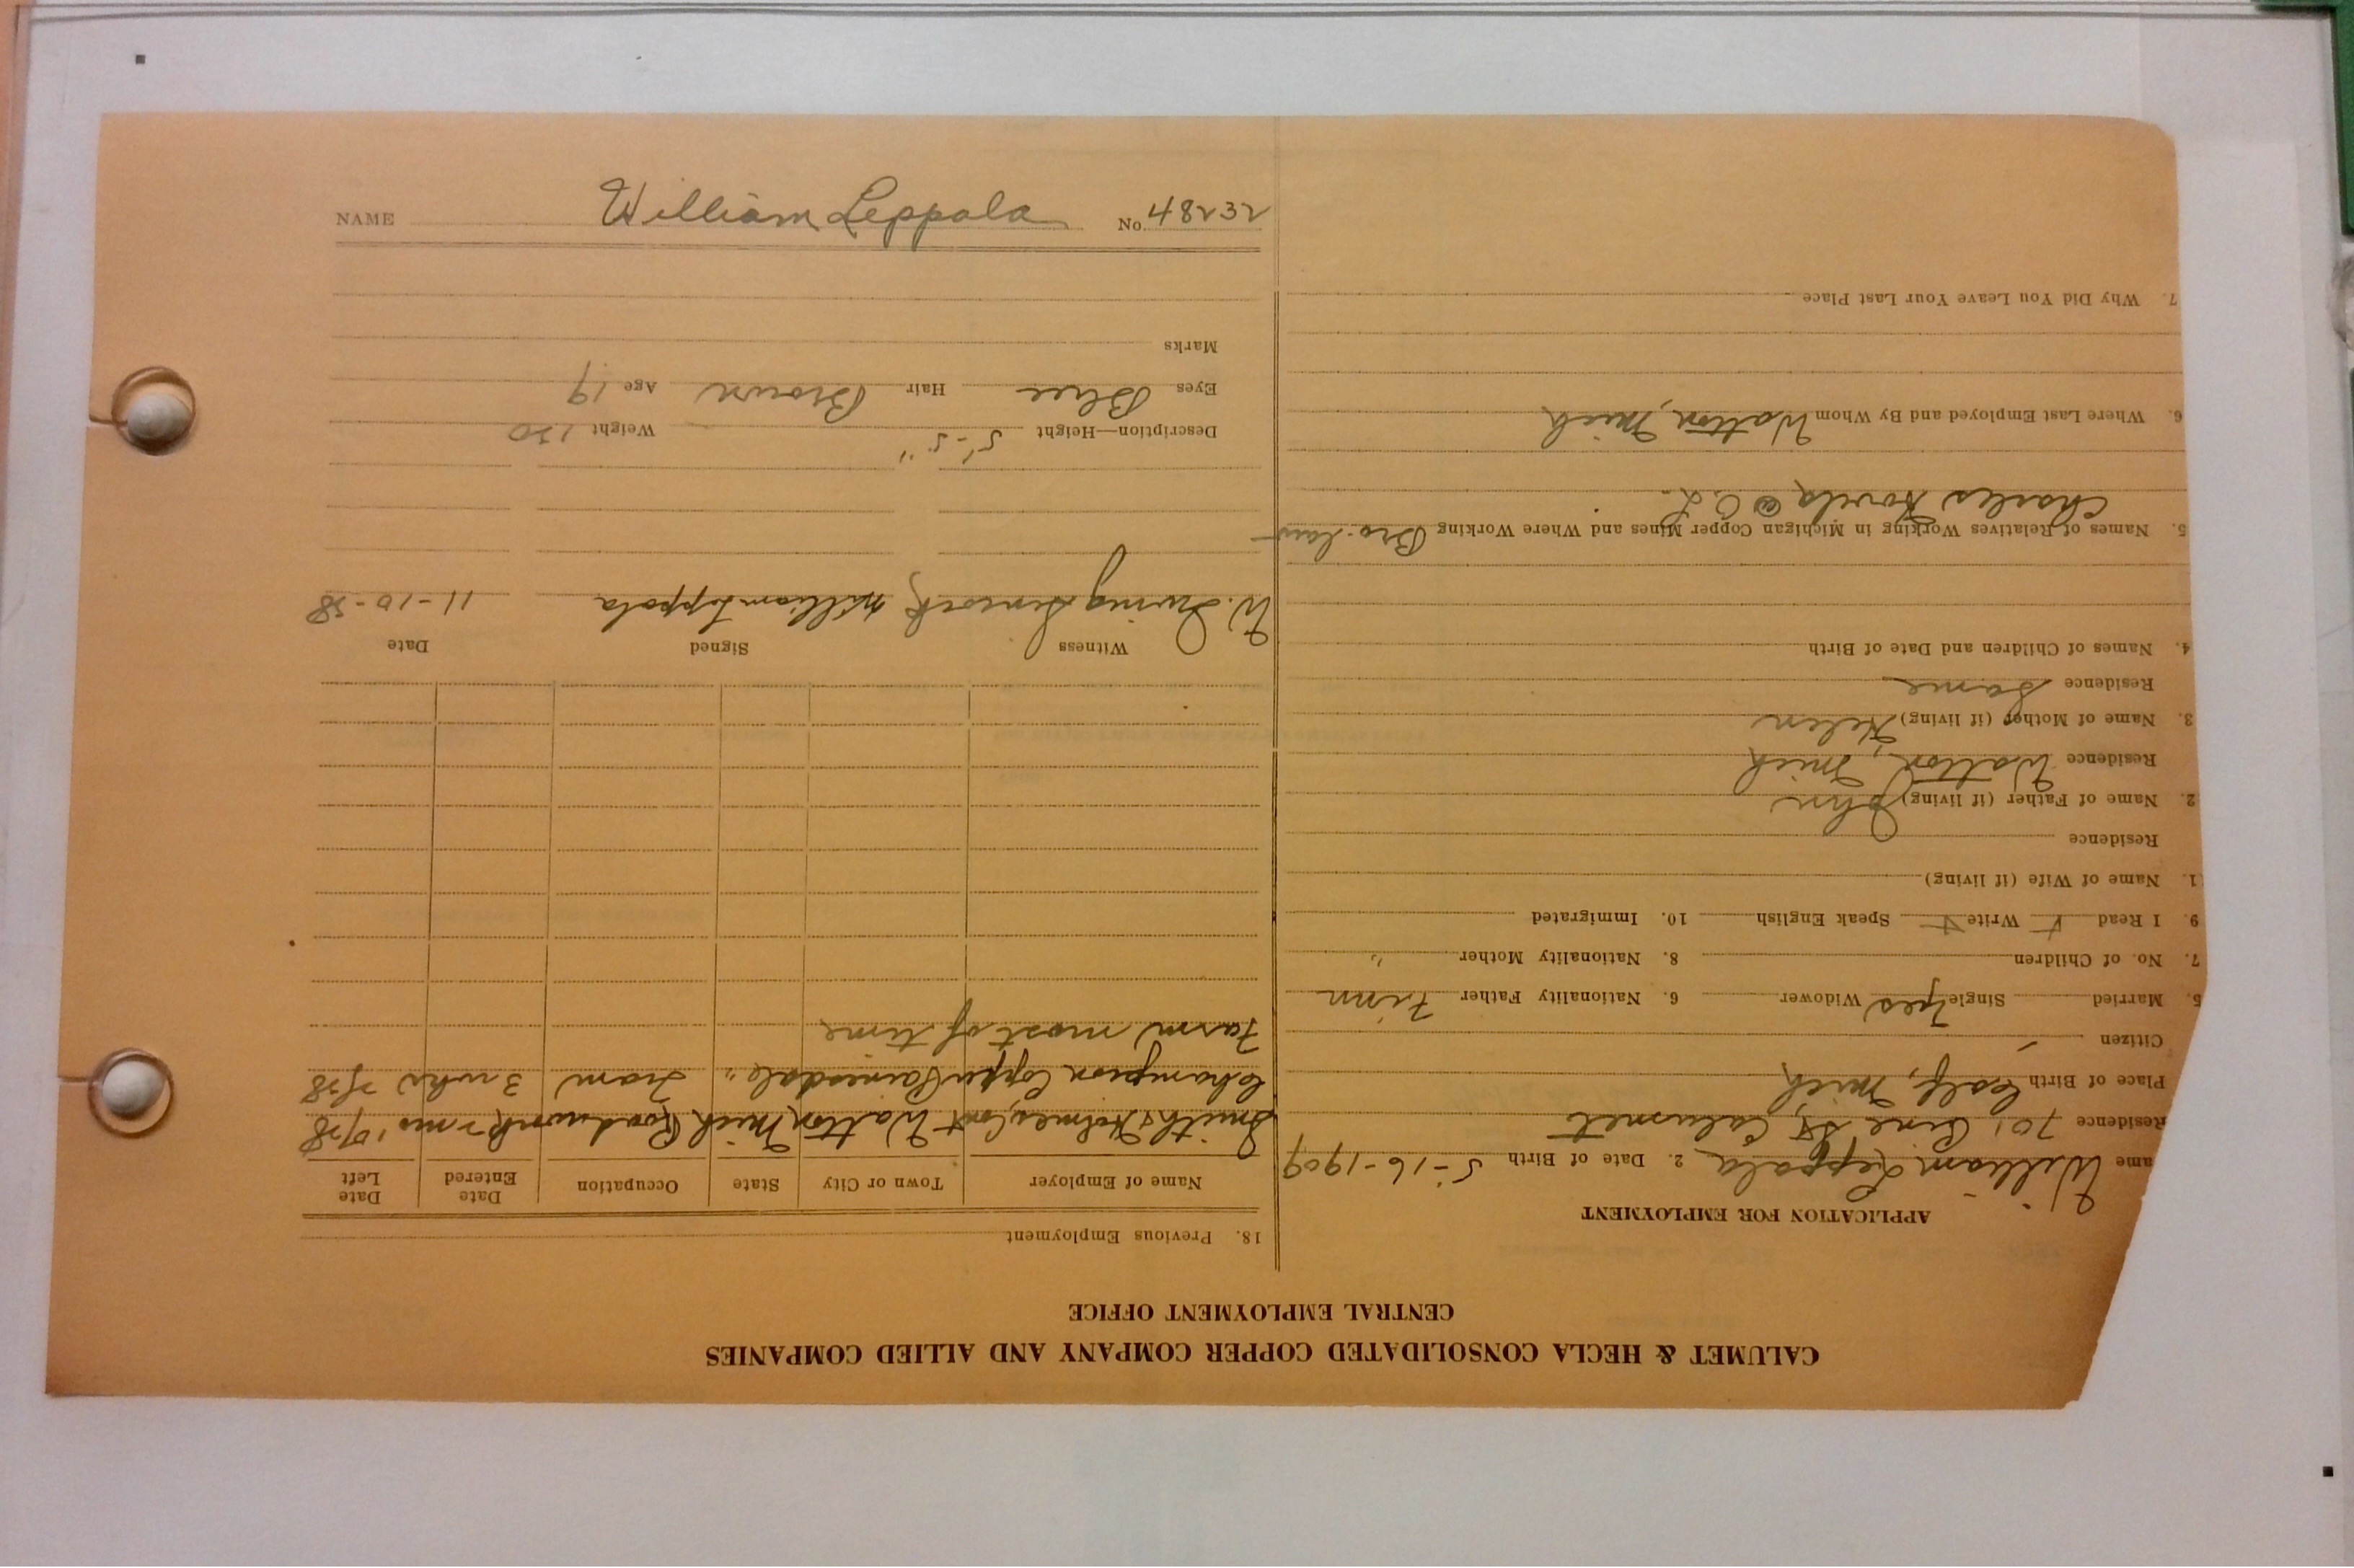 CALUMET & HECLA CONSOLIDATED COPPER COMPANY AND ALLIED COMPANIES
CENTRAL EMPLOYMENT OFFICE
APPLICATION FOR EMPLOYMENT
ame William Leppala 2. Date of Birth 5-16-1909
Residence 701 Pine St, Calumet
Place of Birth Mich
Citizen
5. Married Single Yes Widower 6. Nationality Father Finn
7. No. of Children 8. Nationality Mother "
9. I Read Write Speak English 10. Immigrated
1. Name of Wife (if living)
Residence
2. Name of Father (if living) John
Residence Watton, Mich
3. Name of Mother (if living) Helen
Residence Same
4. Names of Children and Date of Birth
5. Names of Relatives Working in Michigan Copper Mines and Where Working Bro-law
Charles @ C.L.
6. Where Last Employed and By Whom Watton, Mich
7. Why Did You Leave Your Last Place
18. Previous Employment
Name of Employer Town or City State Occupation Date Entered Date Left
Smith & Holmes, Cont Watton Mich Roadwork 2 mo
Champion Copper Painesdale " Tram 3 wks
Farm most of time
Witness Signed Date
W. Irving William Leppala 11-10-
Description—Height 5'-5" Weight
Eyes Blue Hair Brown Age 19
Marks
NAME William Leppala No. 48232